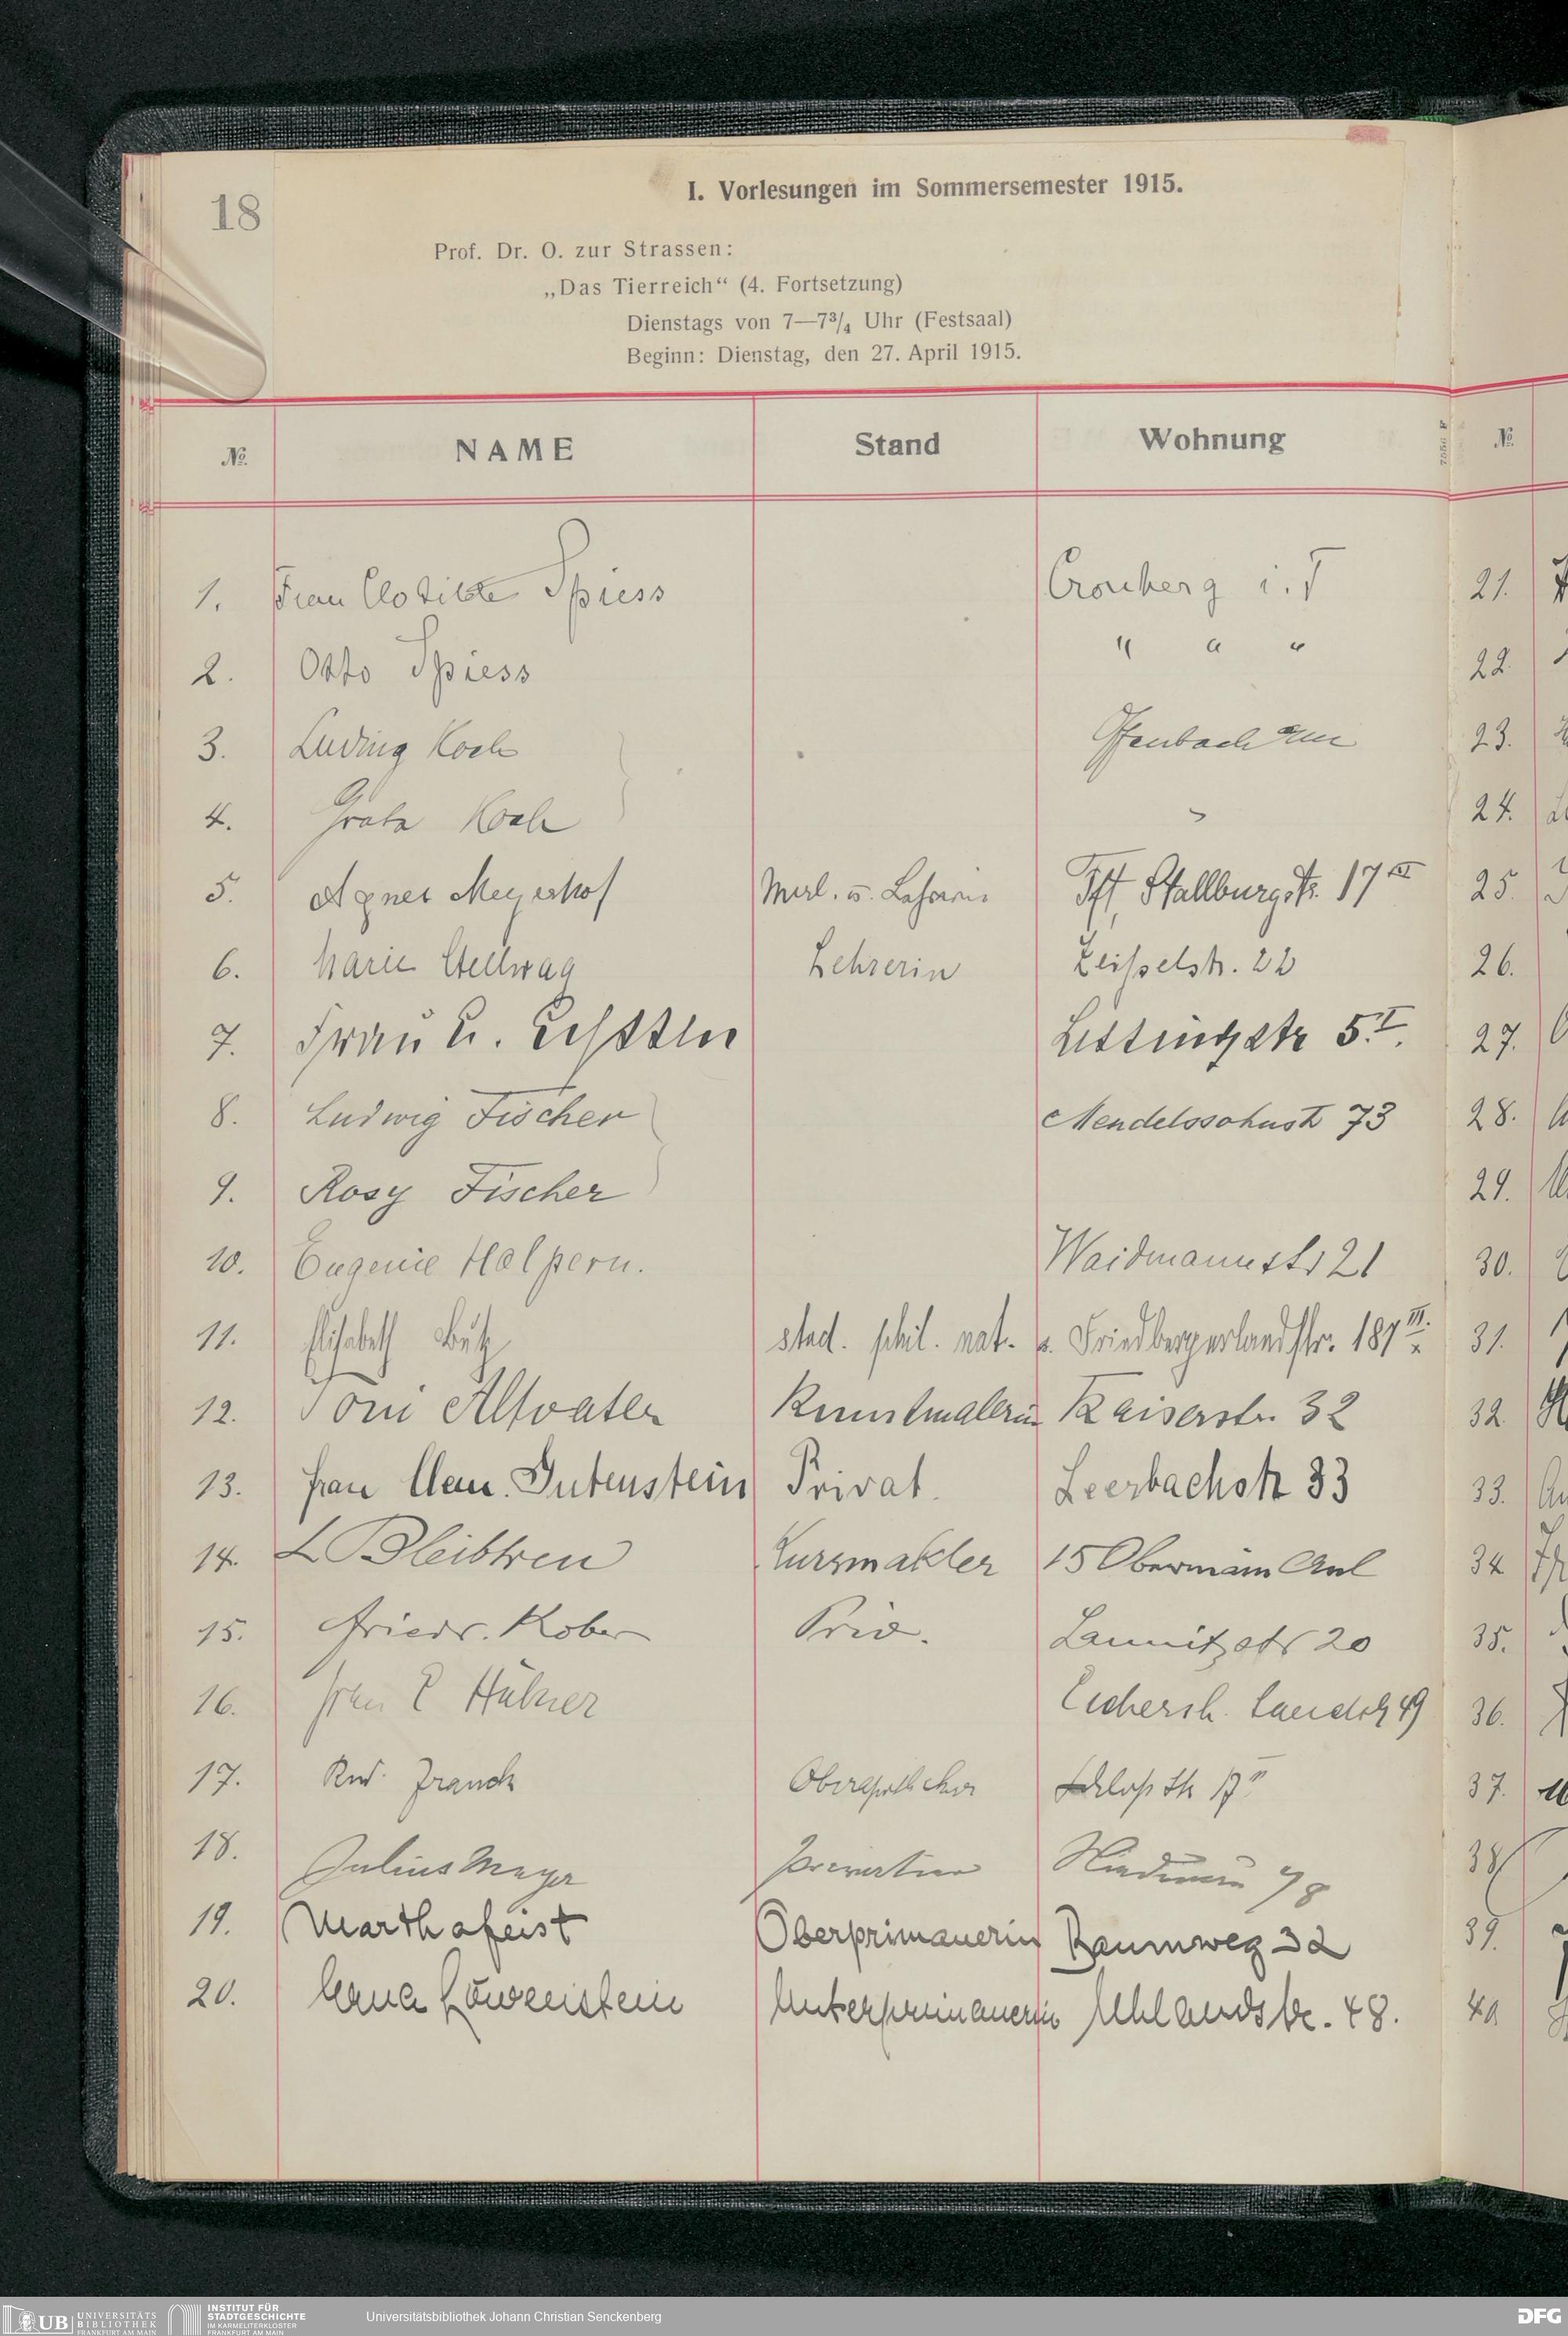 18
I. Vorlesungen im Sommersemester 1915.
Prof. Dr. O. zur Strassen:
„Das Tierreich“ (4. Fortsetzung)
Dienstags von 7—7³/₄ Uhr (Festsaal)
Beginn: Dienstag, den 27. April 1915.
№ NAME Stand Wohnung №
1. Frau Clotilde Spiess Cronberg i. T 21.
2. Otto Spiess " " " 22.
3. Ludwig Koch Offenbach 23.
4. Koch 24.
5. Agnes Meyerhof Mal. u. Lehrerin Fft, Stallburgstr. 17 25.
6. Marie Stellwag Lehrerin 22 26.
7. Frau Lessingstr 5.I. 27.
8. Ludwig Fischer Mendelssohnstr 73 28.
9. Rosy Fischer 29.
10. Eugenie Halpern. Waidmannstr 21 30.
11. Elisabeth stud. phil. nat. Friedbergerlandstr. 187 III. 31.
12. Toni Altvater Kunstmalerin Kaiserstr. 32 32.
13. Frau Clem. Gutenstein Privat. Leerbachstr 33 33.
14. L Bleibtreu Kursmakler 15 Obermain Anl 34
15. Friedr. Kober Priv. Launitzstr 20 35.
16. Frau E Hübner Eschersh. Landstr 49 36.
17. Rud. Franck Oberapotheker Schloss Str 17 II 37.
18. Julius Meyer Privatier 38
19. Martha Feist Oberprimanerin Baumweg 32 39.
20. Erna Löwenstein Unterprimanerin Uhlandstr. 48. 40
UB UNIVERSITÄTS
BIBLIOTHEK
FRANKFURT AM MAIN
INSTITUT FÜR
STADTGESCHICHTE
IM KARMELITERKLOSTER
FRANKFURT AM MAIN
Universitätsbibliothek Johann Christian Senckenberg
DFG